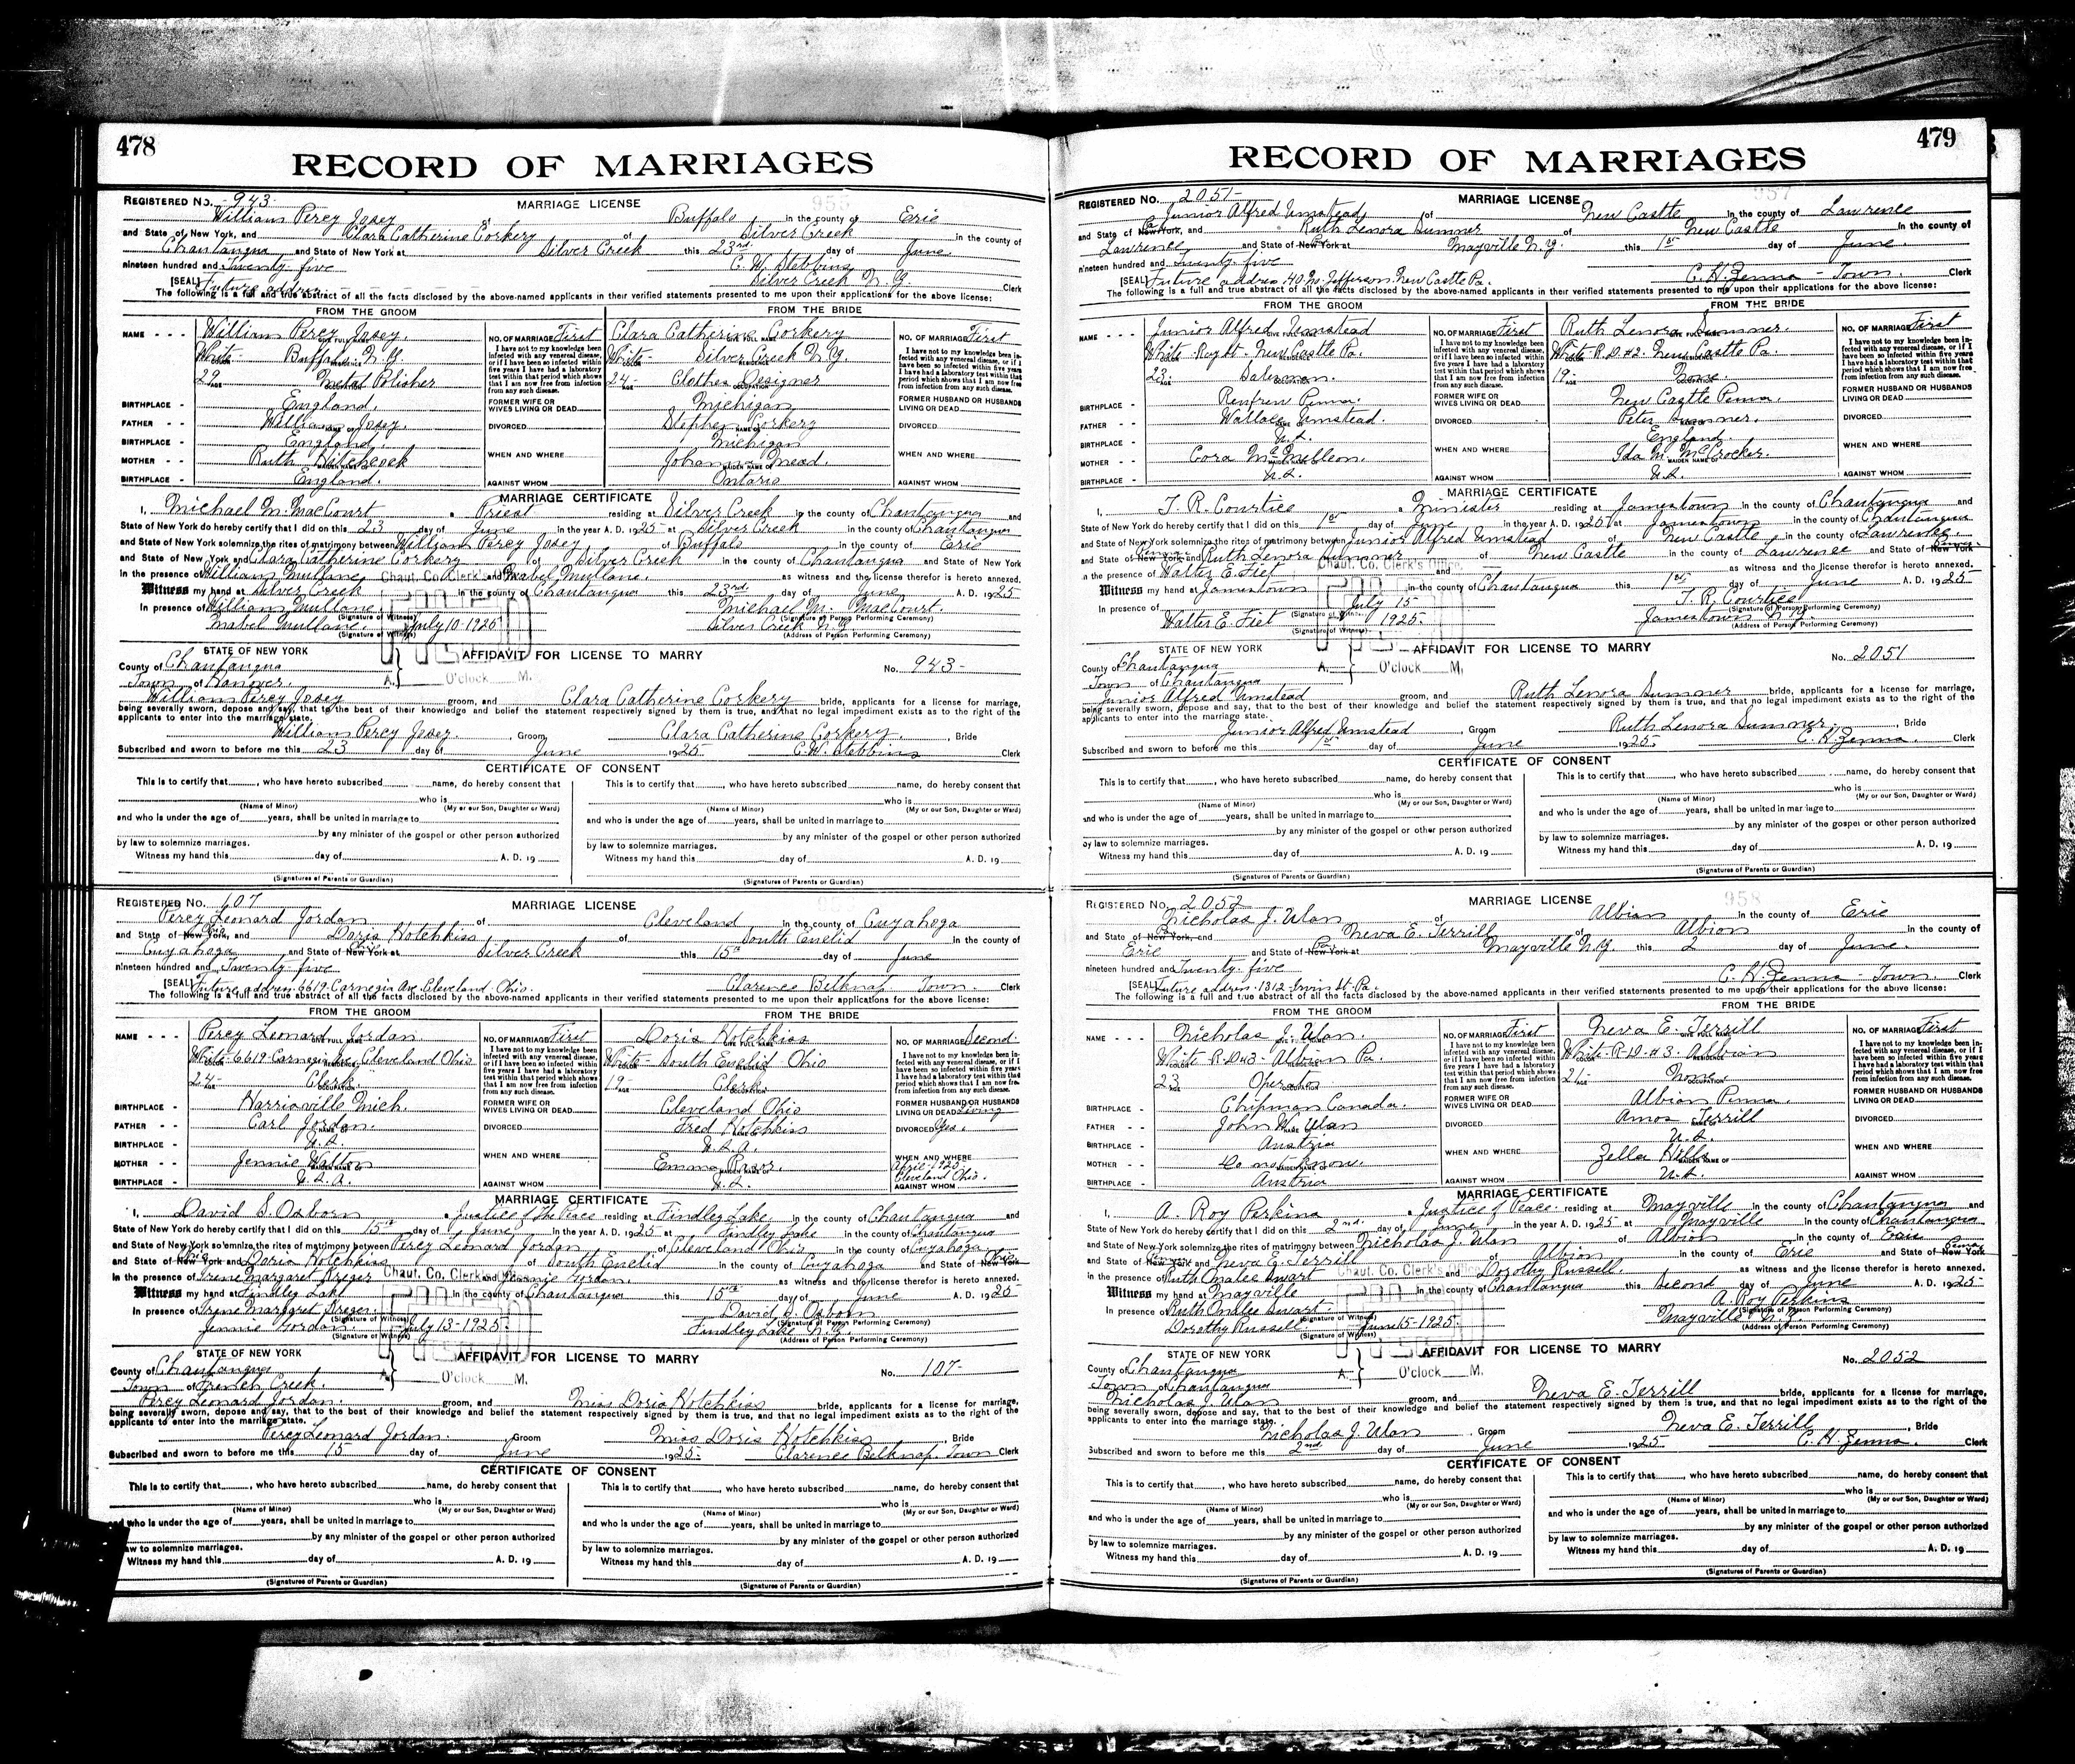 478
RECORD OF MARRIAGES
REGISTERED NO. 943- MARRIAGE LICENSE 955
William Percy Josey of Buffalo in the county of Erie
and State of New York, and Clara Catherine Corkery of Silver Creek in the county of
Chautauqua and State of New York at Silver Creek this 23rd day of June
nineteen hundred and Twenty-five C. W. Stebbins
[SEAL] Future address Silver Creek N. Y. Clerk
The following is a full and true abstract of all the facts disclosed by the above-named applicants in their verified statements presented to me upon their applications for the above license:
FROM THE GROOM FROM THE BRIDE
NAME - - - William Percy Josey. GIVE FULL NAME NO. OF MARRIAGE First Clara Catherine Corkery GIVE FULL NAME NO. OF MARRIAGE First
I have not to my knowledge been infected with any venereal disease, or if I have been so infected within five years I have had a laboratory test within that period which shows that I am now free from infection from any such disease.
White COLOR Buffalo N.Y. RESIDENCE White COLOR Silver Creek N.Y. RESIDENCE
29 AGE Metal Polisher OCCUPATION 24- AGE Clothes Designer OCCUPATION
BIRTHPLACE - England. FORMER WIFE OR WIVES LIVING OR DEAD Michigan FORMER HUSBAND OR HUSBANDS LIVING OR DEAD
FATHER - - William Josey. NAME OF DIVORCED Stephen Corkery NAME OF DIVORCED
BIRTHPLACE - England. Michigan
MOTHER - - Ruth Hitchcock MAIDEN NAME OF WHEN AND WHERE Johanna Mead. MAIDEN NAME OF WHEN AND WHERE
BIRTHPLACE - England. AGAINST WHOM Ontario AGAINST WHOM
MARRIAGE CERTIFICATE
I, Michael M. MacCourt a Priest residing at Silver Creek in the county of Chautauqua and
State of New York do hereby certify that I did on this 23 day of June in the year A. D. 1925 at Silver Creek in the county of Chautauqua
and State of New York solemnize the rites of matrimony between William Percy Josey of Buffalo in the county of Erie
and State of New York and Clara Catherine Corkery of Silver Creek in the county of Chautauqua and State of New York
in the presence of William Mullane and Mabel Mullane. as witness and the license therefor is hereto annexed.
Witness my hand at Silver Creek in the county of Chautauqua this 23rd day of June A. D. 1925
In presence of William Mullane. (Signature of Witness) Michael M. MacCourt. (Signature of Person Performing Ceremony)
Mabel Mullane. (Signature of Witness) Silver Creek N.Y. (Address of Person Performing Ceremony)
Chaut. Co. Clerk's Office
FILED
July 10-1925
A. O'clock M.
STATE OF NEW YORK AFFIDAVIT FOR LICENSE TO MARRY
County of Chautauqua No. 943-
Town of Hanover.
William Percy Josey groom, and Clara Catherine Corkery bride, applicants for a license for marriage,
being severally sworn, depose and say, that to the best of their knowledge and belief the statement respectively signed by them is true, and that no legal impediment exists as to the right of the
applicants to enter into the marriage state.
William Percy Josey. , Groom Clara Catherine Corkery. , Bride
Subscribed and sworn to before me this 23 day of June 1925 C. W. Stebbins Clerk
CERTIFICATE OF CONSENT
This is to certify that, who have hereto subscribed name, do hereby consent that This is to certify that, who have hereto subscribed name, do hereby consent that
who is who is
(Name of Minor) (My or our Son, Daughter or Ward) (Name of Minor) (My or our Son, Daughter or Ward)
and who is under the age of years, shall be united in marriage to and who is under the age of years, shall be united in marriage to
by any minister of the gospel or other person authorized by any minister of the gospel or other person authorized
by law to solemnize marriages. by law to solemnize marriages.
Witness my hand this day of A. D. 19 Witness my hand this day of A. D. 19
(Signatures of Parents or Guardian) (Signatures of Parents or Guardian)
REGISTERED NO. 107 MARRIAGE LICENSE
Percy Leonard Jordan of Cleveland in the county of Cuyahoga
and State of New York, Ohio and Doris Hotchkiss of South Euclid in the county of
Cuyahoga and State of New York Ohio at Silver Creek this 15th day of June
nineteen hundred and Twenty five
[SEAL] Future address 6619-Carnegie Ave Cleveland Ohio. Clarence Belknap Town. Clerk
The following is a full and true abstract of all the facts disclosed by the above-named applicants in their verified statements presented to me upon their applications for the above license:
FROM THE GROOM FROM THE BRIDE
NAME - - - Percy Leonard Jordan GIVE FULL NAME NO. OF MARRIAGE First Doris Hotchkiss GIVE FULL NAME NO. OF MARRIAGE Second
I have not to my knowledge been infected with any venereal disease, or if I have been so infected within five years I have had a laboratory test within that period which shows that I am now free from infection from any such disease.
White COLOR 6619-Carnegie Ave, Cleveland Ohio RESIDENCE White COLOR South Euclid Ohio RESIDENCE
24- AGE Clerk OCCUPATION 19- AGE Clerk OCCUPATION
BIRTHPLACE - Harrisville Mich. FORMER WIFE OR WIVES LIVING OR DEAD Cleveland Ohio FORMER HUSBAND OR HUSBANDS LIVING OR DEAD Living
FATHER - - Carl Jordan. NAME OF DIVORCED Fred Hotchkiss NAME OF DIVORCED Yes.
BIRTHPLACE - U.S. U.S.A.
MOTHER - - Jennie Walton MAIDEN NAME OF WHEN AND WHERE Emma MAIDEN NAME OF WHEN AND WHERE April-1925- Cleveland Ohio.
BIRTHPLACE - U.S.A. AGAINST WHOM U.S. AGAINST WHOM
MARRIAGE CERTIFICATE
I, David S. Osborn a Justice of The Peace residing at Findley Lake in the county of Chautauqua and
State of New York do hereby certify that I did on this 15th day of June in the year A. D. 1925 at Findley Lake in the county of Chautauqua
and State of New York solemnize the rites of matrimony between Percy Leonard Jordan of Cleveland Ohio in the county of Cuyahoga
and State of New York Ohio and Doris Hotchkiss of South Euclid in the county of Cuyahoga and State of New York Ohio
in the presence of Irene Margaret Kreger and Jennie Jordan. as witness and the license therefor is hereto annexed.
Witness my hand at Findley Lake in the county of Chautauqua this 15th day of June A. D. 1925
In presence of Irene Margaret Kreger. (Signature of Witness) David S. Osborn (Signature of Person Performing Ceremony)
Jennie Jordan. (Signature of Witness) Findley Lake N.Y. (Address of Person Performing Ceremony)
Chaut. Co. Clerk's
FILED
July 13-1925-
A. O'clock M.
STATE OF NEW YORK AFFIDAVIT FOR LICENSE TO MARRY
County of Chautauqua No. 107-
Town of French Creek.
Percy Leonard Jordan. groom, and Miss Doris Hotchkiss bride, applicants for a license for marriage,
being severally sworn, depose and say, that to the best of their knowledge and belief the statement respectively signed by them is true, and that no legal impediment exists as to the right of the
applicants to enter into the marriage state.
Percy Leonard Jordan. , Groom Miss Doris Hotchkiss , Bride
Subscribed and sworn to before me this 15 day of June 1925- Clarence Belknap, Town Clerk
CERTIFICATE OF CONSENT
This is to certify that, who have hereto subscribed name, do hereby consent that This is to certify that, who have hereto subscribed name, do hereby consent that
who is who is
(Name of Minor) (My or our Son, Daughter or Ward) (Name of Minor) (My or our Son, Daughter or Ward)
and who is under the age of years, shall be united in marriage to and who is under the age of years, shall be united in marriage to
by any minister of the gospel or other person authorized by any minister of the gospel or other person authorized
law to solemnize marriages. by law to solemnize marriages.
Witness my hand this day of A. D. 19 Witness my hand this day of A. D. 19
(Signatures of Parents or Guardian) (Signatures of Parents or Guardian)
479
RECORD OF MARRIAGES
REGISTERED NO. 2051- MARRIAGE LICENSE 957
Junior Alfred Umstead of New Castle in the county of Lawrence
and State of New York, Pa and Ruth Lenora Sumner of New Castle in the county of
Lawrence and State of New York Pa at Mayville N.Y. this 1st day of June.
nineteen hundred and Twenty-five
[SEAL] Future address 40-No. Jefferson. New Castle Pa. C. H. Zenna - Town. Clerk
The following is a full and true abstract of all the facts disclosed by the above-named applicants in their verified statements presented to me upon their applications for the above license:
FROM THE GROOM FROM THE BRIDE
NAME - - - Junior Alfred Umstead GIVE FULL NAME NO. OF MARRIAGE First Ruth Lenora Sumner. GIVE FULL NAME NO. OF MARRIAGE First
I have not to my knowledge been infected with any venereal disease, or if I have been so infected within five years I have had a laboratory test within that period which shows that I am now free from infection from any such disease.
White COLOR Ray St- New Castle Pa. White COLOR R.D.#2. New Castle Pa.
23- AGE Salesman. OCCUPATION 19- AGE None. OCCUPATION
BIRTHPLACE - Renfrew Penna. FORMER WIFE OR WIVES LIVING OR DEAD New Castle Penna. FORMER HUSBAND OR HUSBANDS LIVING OR DEAD
FATHER - - Wallace Umstead. NAME OF DIVORCED Peter Sumner. NAME OF DIVORCED
BIRTHPLACE - U.S. England.
MOTHER - - Cora McMelleon. MAIDEN NAME OF WHEN AND WHERE Ida M. McCrocker. MAIDEN NAME OF WHEN AND WHERE
BIRTHPLACE - U.S. AGAINST WHOM U.S. AGAINST WHOM
MARRIAGE CERTIFICATE
I, T. R. Courtice a Minister residing at Jamestown in the county of Chautauqua and
State of New York do hereby certify that I did on this 1st day of June in the year A. D. 1925 at Jamestown in the county of Chautauqua
and State of New York solemnize the rites of matrimony between Junior Alfred Umstead of New Castle in the county of Lawrence.
and State of New York Penna and Ruth Lenora Sumner of New Castle in the county of Lawrence and State of New York Penna
in the presence of Walter E. Fiet and as witness and the license therefor is hereto annexed.
Witness my hand at Jamestown in the county of Chautauqua this 1st day of June A. D. 1925-
In presence of (Signature of Witness) T. R. Courtice (Signature of Person Performing Ceremony)
Walter E. Fiet (Signature of Witness) Jamestown N.Y. (Address of Person Performing Ceremony)
Chaut. Co. Clerk's Office.
FILED
July 15 1925-
A. O'clock M.
STATE OF NEW YORK AFFIDAVIT FOR LICENSE TO MARRY
County of Chautauqua No. 2051
Town of Chautauqua
Junior Alfred Umstead groom, and Ruth Lenora Sumner bride, applicants for a license for marriage,
being severally sworn, depose and say, that to the best of their knowledge and belief the statement respectively signed by them is true, and that no legal impediment exists as to the right of the
applicants to enter into the marriage state.
Junior Alfred Umstead , Groom Ruth Lenora Sumner. , Bride
Subscribed and sworn to before me this 1st day of June 1925. C. H. Zenna. Clerk
CERTIFICATE OF CONSENT
This is to certify that, who have hereto subscribed name, do hereby consent that This is to certify that, who have hereto subscribed name, do hereby consent that
who is who is
(Name of Minor) (My or our Son, Daughter or Ward) (Name of Minor) (My or our Son, Daughter or Ward)
and who is under the age of years, shall be united in marriage to and who is under the age of years, shall be united in marriage to
by any minister of the gospel or other person authorized by any minister of the gospel or other person authorized
by law to solemnize marriages. by law to solemnize marriages.
Witness my hand this day of A. D. 19 Witness my hand this day of A. D. 19
(Signatures of Parents or Guardian) (Signatures of Parents or Guardian)
REGISTERED NO. 2052 MARRIAGE LICENSE 958
Nicholas J. Ulan of Albion in the county of Erie
and State of New York, Pa and Neva E. Terrill of Albion in the county of
Erie and State of New York Pa at Mayville N.Y. this 2 day of June.
nineteen hundred and Twenty-five
[SEAL] Future address-1312-Irwin St- Pa. C. H. Zenna - Town. Clerk
The following is a full and true abstract of all the facts disclosed by the above-named applicants in their verified statements presented to me upon their applications for the above license:
FROM THE GROOM FROM THE BRIDE
NAME - - - Nicholas J. Ulan. GIVE FULL NAME NO. OF MARRIAGE First Neva E. Terrill GIVE FULL NAME NO. OF MARRIAGE First
I have not to my knowledge been infected with any venereal disease, or if I have been so infected within five years I have had a laboratory test within that period which shows that I am now free from infection from any such disease.
White COLOR R.D#3- Albion Pa. RESIDENCE White COLOR R.D.#3. Albion RESIDENCE
23 AGE Operator OCCUPATION 21- AGE None OCCUPATION
BIRTHPLACE - Chipman Canada. FORMER WIFE OR WIVES LIVING OR DEAD Albion Penna. FORMER HUSBAND OR HUSBANDS LIVING OR DEAD
FATHER - - John W. Ulan NAME OF DIVORCED Amos Terrill NAME OF DIVORCED
BIRTHPLACE - Austria U.S.
MOTHER - - Do not know. MAIDEN NAME OF WHEN AND WHERE Zella Hills MAIDEN NAME OF WHEN AND WHERE
BIRTHPLACE - Austria AGAINST WHOM U.S. AGAINST WHOM
MARRIAGE CERTIFICATE
I, A. Roy Perkins a Justice of Peace. residing at Mayville in the county of Chautauqua and
State of New York do hereby certify that I did on this 2nd. day of June in the year A. D. 1925 at Mayville in the county of Chautauqua
and State of New York solemnize the rites of matrimony between Nicholas J. Ulan of Albion in the county of Erie
and State of New York Penna and Neva E. Terrill of Albion in the county of Erie and State of New York Penna
in the presence of Ruth Swart and Dorothy Russell. as witness and the license therefor is hereto annexed.
Witness my hand at Mayville in the county of Chautauqua this Second day of June A. D. 1925-
In presence of Ruth Swart. (Signature of Witness) A. Roy Perkins (Signature of Person Performing Ceremony)
Dorothy Russell (Signature of Witness) Mayville N.Y. (Address of Person Performing Ceremony)
Chaut. Co. Clerk's Office
FILED
June 15-1925-
A. O'clock M.
STATE OF NEW YORK AFFIDAVIT FOR LICENSE TO MARRY
County of Chautauqua No. 2052
Town of Chautauqua
Nicholas J. Ulan groom, and Neva E. Terrill bride, applicants for a license for marriage,
being severally sworn, depose and say, that to the best of their knowledge and belief the statement respectively signed by them is true, and that no legal impediment exists as to the right of the
applicants to enter into the marriage state.
Nicholas J. Ulan , Groom Neva E. Terrill , Bride
Subscribed and sworn to before me this 2nd. day of June 1925. C. H. Zenna. Clerk
CERTIFICATE OF CONSENT
This is to certify that, who have hereto subscribed name, do hereby consent that This is to certify that, who have hereto subscribed name, do hereby consent that
who is who is
(Name of Minor) (My or our Son, Daughter or Ward) (Name of Minor) (My or our Son, Daughter or Ward)
and who is under the age of years, shall be united in marriage to and who is under the age of years, shall be united in marriage to
by any minister of the gospel or other person authorized by any minister of the gospel or other person authorized
by law to solemnize marriages. by law to solemnize marriages.
Witness my hand this day of A. D. 19 Witness my hand this day of A. D. 19
(Signatures of Parents or Guardian) (Signatures of Parents or Guardian)